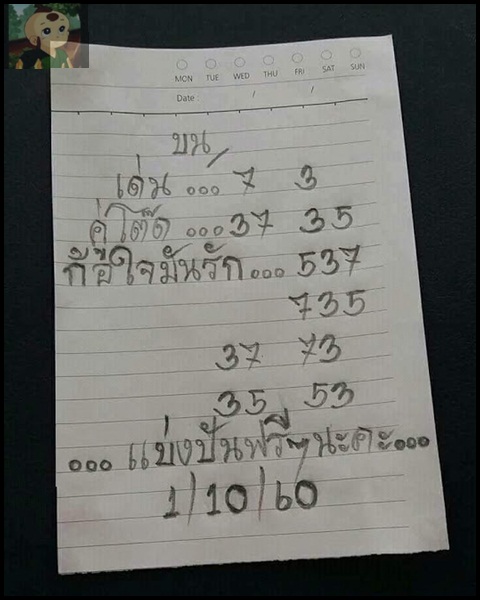 MON TUE WED THU FRI SAT SUN
Date : / /
บน
เด่น ... 7 3
คู่โต๊ด ... 37 35
ก็อีใจมันรัก... 537
735
37 73
35 53
... แบ่งปันฟรีๆนะคะ...
1/10/60